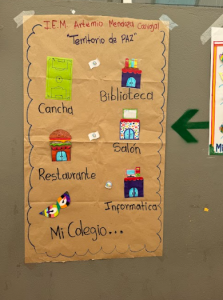 I.E.M. Artemio Mendoza Carvajal
"Territorio de PAZ"
Cancha
Biblioteca
Restaurante
Salón
Informatica
Mi Colegio...